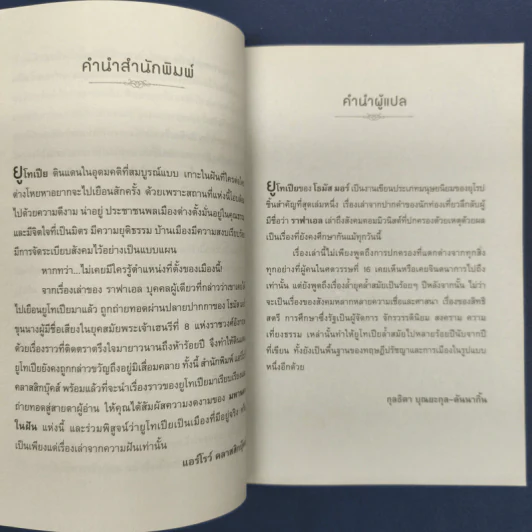 คำนำสำนักพิมพ์
ยูโทเปีย ดินแดนในอุดมคติที่สมบูรณ์แบบ เกาะในฝันที่ใครต่อ
ต่างโหยหาอยากจะไปเยือนสักครั้ง ด้วยเพราะสถานที่แห่งนี้
ไปด้วยความดีงาม น่าอยู่ ประชาชนพลเมืองต่างตั้งมั่นอยู่ใน
และมีจิตใจที่เป็นมิตร มีความยุติธรรม บ้านเมืองมีความสงบ
มีการจัดระเบียบสังคมไว้อย่างเป็นแบบแผน
หากทว่า...ไม่เคยมีใครรู้ตำแหน่งที่ตั้งของเมืองนี้!
จากเรื่องเล่าของ ราฟาเอล บุคคลผู้เดียวที่กล่าวว่าเขา
ไปเยือนยูโทเปียมาแล้ว ถูกถ่ายทอดผ่านปลายปากกาของ
ขุนนางผู้มีชื่อเสียงในยุคสมัยพระเจ้าเฮนรีที่ 8 แห่งราชวงศ์
ด้วยเรื่องราวที่ติดตราตรึงใจมายาวนานถึงห้าร้อยปี จึงทำให้
ยูโทเปียยังคงถูกกล่าวขวัญถึงอยู่มิเสื่อมคลาย ทั้งนี้ สำนักพิมพ์
คลาสสิกบุ๊คส์ พร้อมแล้วที่จะนำเรื่องราวของยูโทเปียมาเรียบเรียง
ถ่ายทอดสู่สายตาผู้อ่าน ให้คุณได้สัมผัสความงดงามของ
ในฝัน แห่งนี้ และร่วมพิสูจน์ว่ายูโทเปียเป็นเมืองที่มีอยู่จริง
เป็นเพียงแค่เรื่องเล่าจากความฝันเท่านั้น
แอร์โรว์ คลาสสิก
คำนำผู้แปล
ยูโทเปียของ โธมัส มอร์ เป็นงานเขียนประเภทมนุษยนิยมของยุโรป
ชิ้นสำคัญที่สุดเล่มหนึ่ง เรื่องเล่าจากปากคำของนักท่องเที่ยวลึกลับผู้
มีชื่อว่า ราฟาเอล เล่าถึงสังคมคอมมิวนิสต์ที่ปกครองด้วยเหตุด้วยผล
เป็นเรื่องที่ยังคงศึกษากันแม้ทุกวันนี้
เรื่องเล่านี้ไม่เพียงพูดถึงการปกครองที่แตกต่างจากทุกสิ่ง
ทุกอย่างที่ผู้คนในศตวรรษที่ 16 เคยเห็นหรือเคยจินตนาการไปถึง
เท่านั้น แต่ยังพูดถึงเรื่องล้ำยุคล้ำสมัยเป็นร้อยๆ ปีหลังจากนั้น ไม่ว่า
จะเป็นเรื่องของสังคมหลากหลายความเชื่อและศาสนา เรื่องของสิทธิ
สตรี การศึกษาซึ่งรัฐเป็นผู้จัดการ จักรวรรดินิยม สงคราม ความ
เที่ยงธรรม เหล่านั้นทำให้ยูโทเปียล้ำสมัยไปหลายร้อยปีนับจากปี
ที่เขียน ทั้งยังเป็นพื้นฐานของทฤษฎีปรัชญาและการเมืองในรูปแบบ
หนึ่งอีกด้วย
กุลธิดา บุณยะกุล-ดันนากิ้น